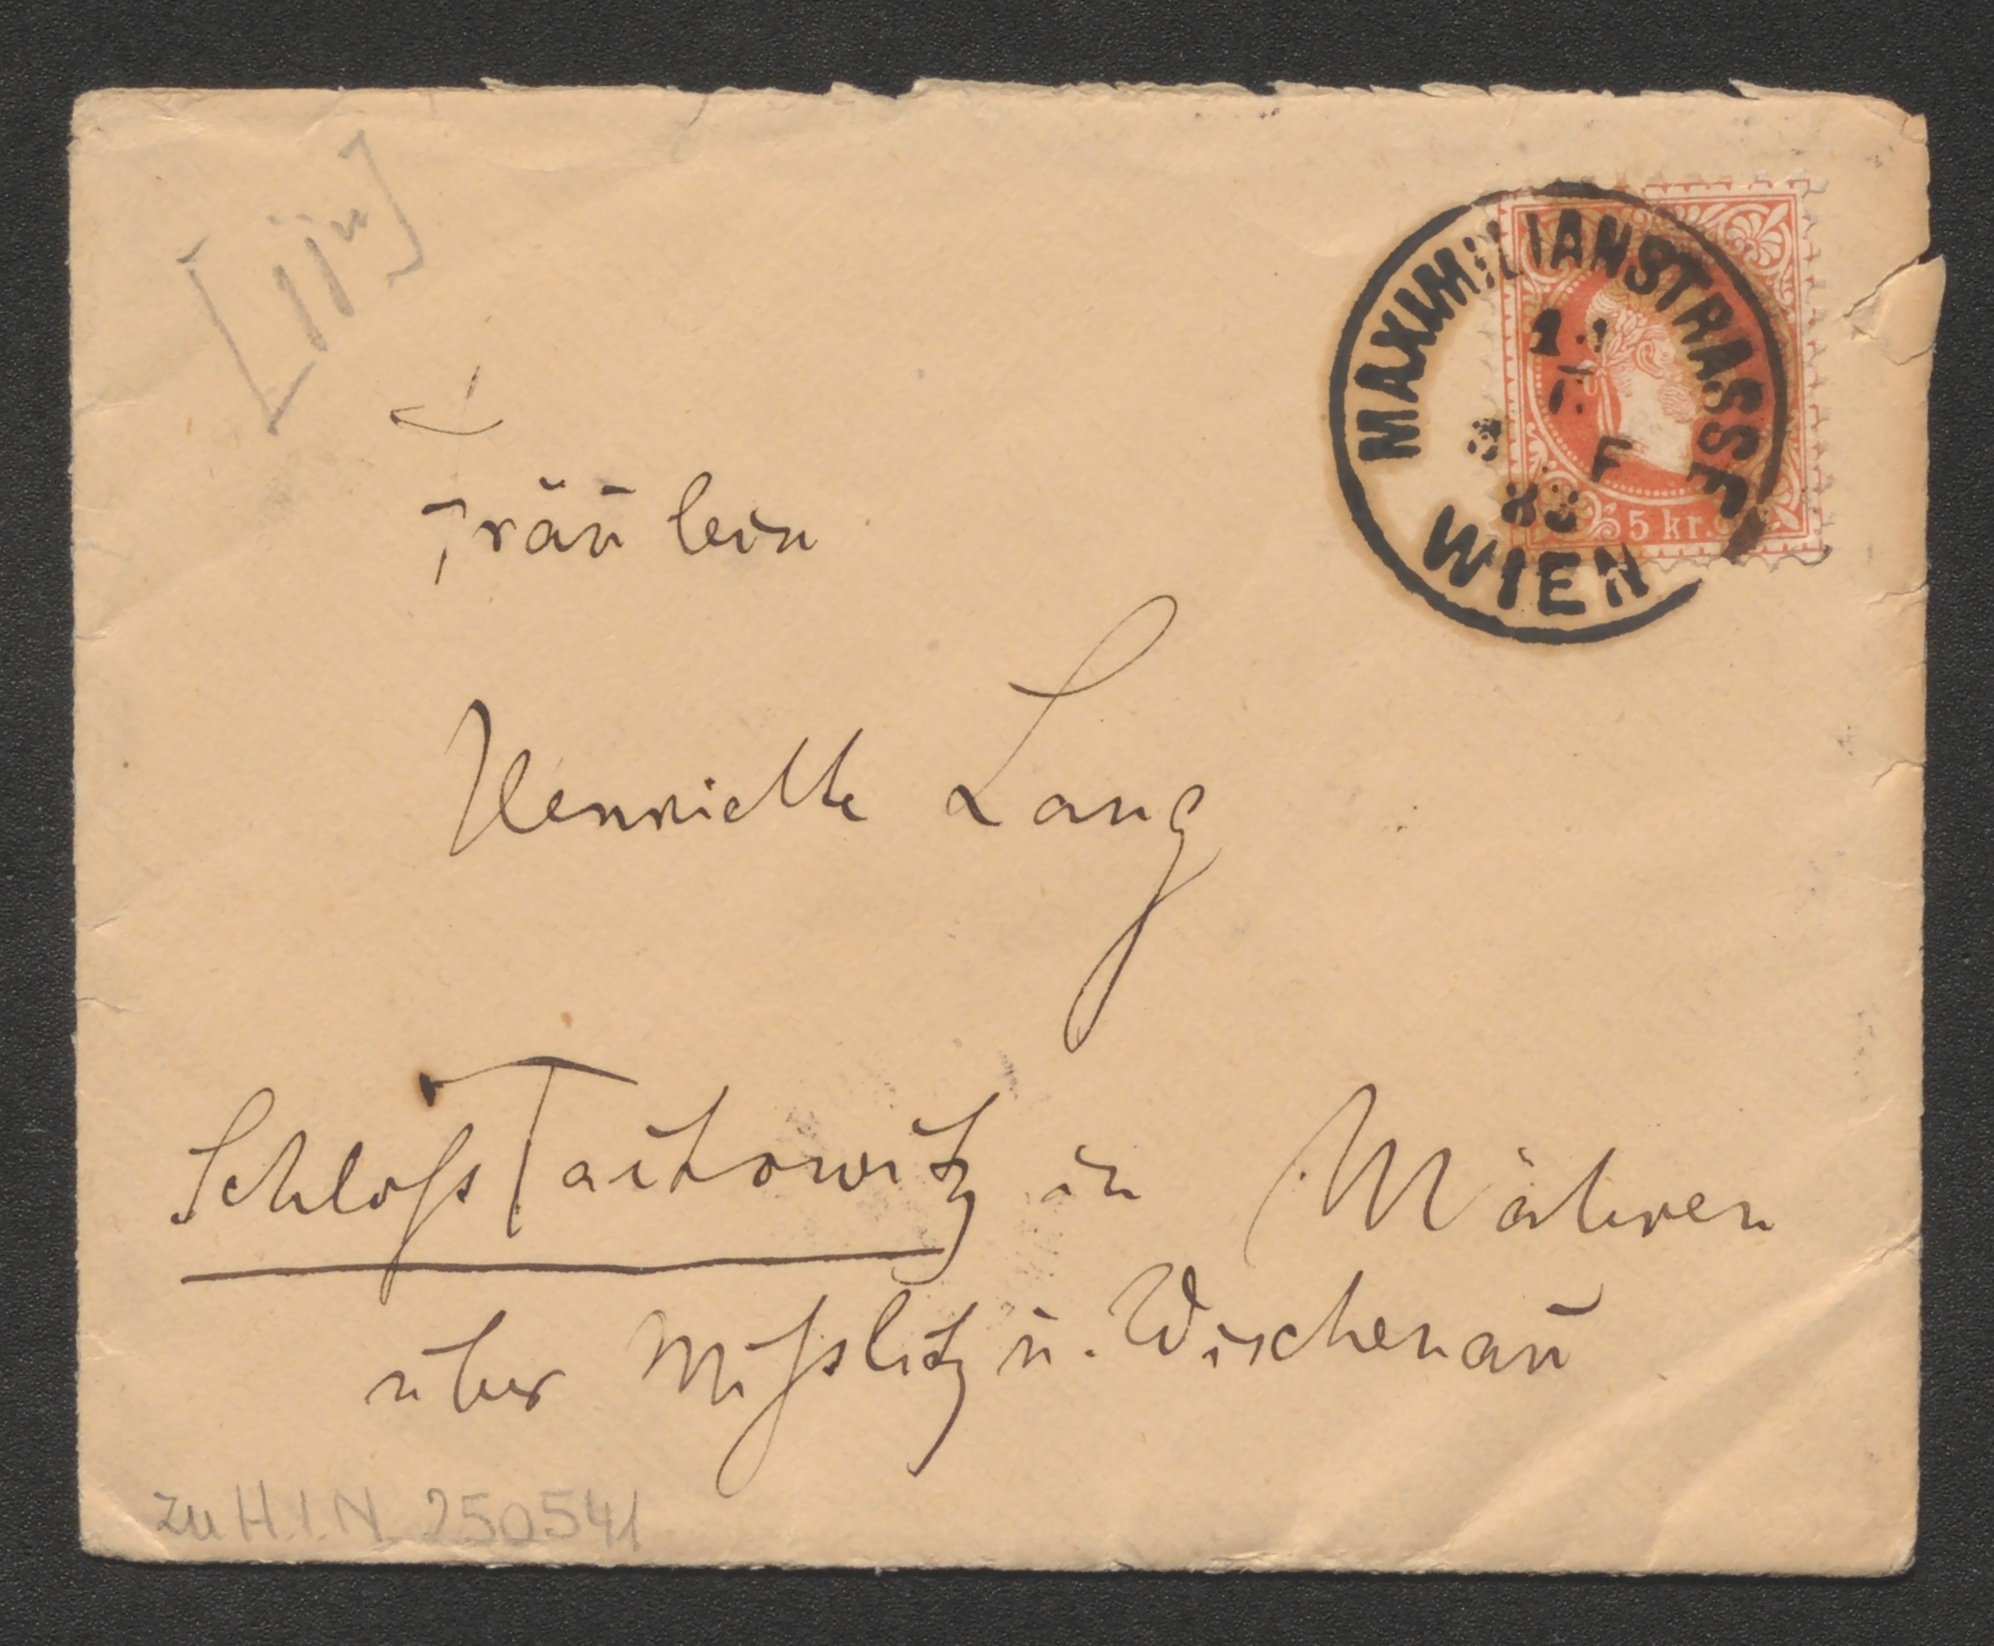 Fräulein
Henriette Lang
Schloß Taikowitz in Mähren
über Mißlitz u. Wischenau
MAXIMILIANSTRASSE
F
83
WIEN
5 kr.
zu H.I.N. 250541